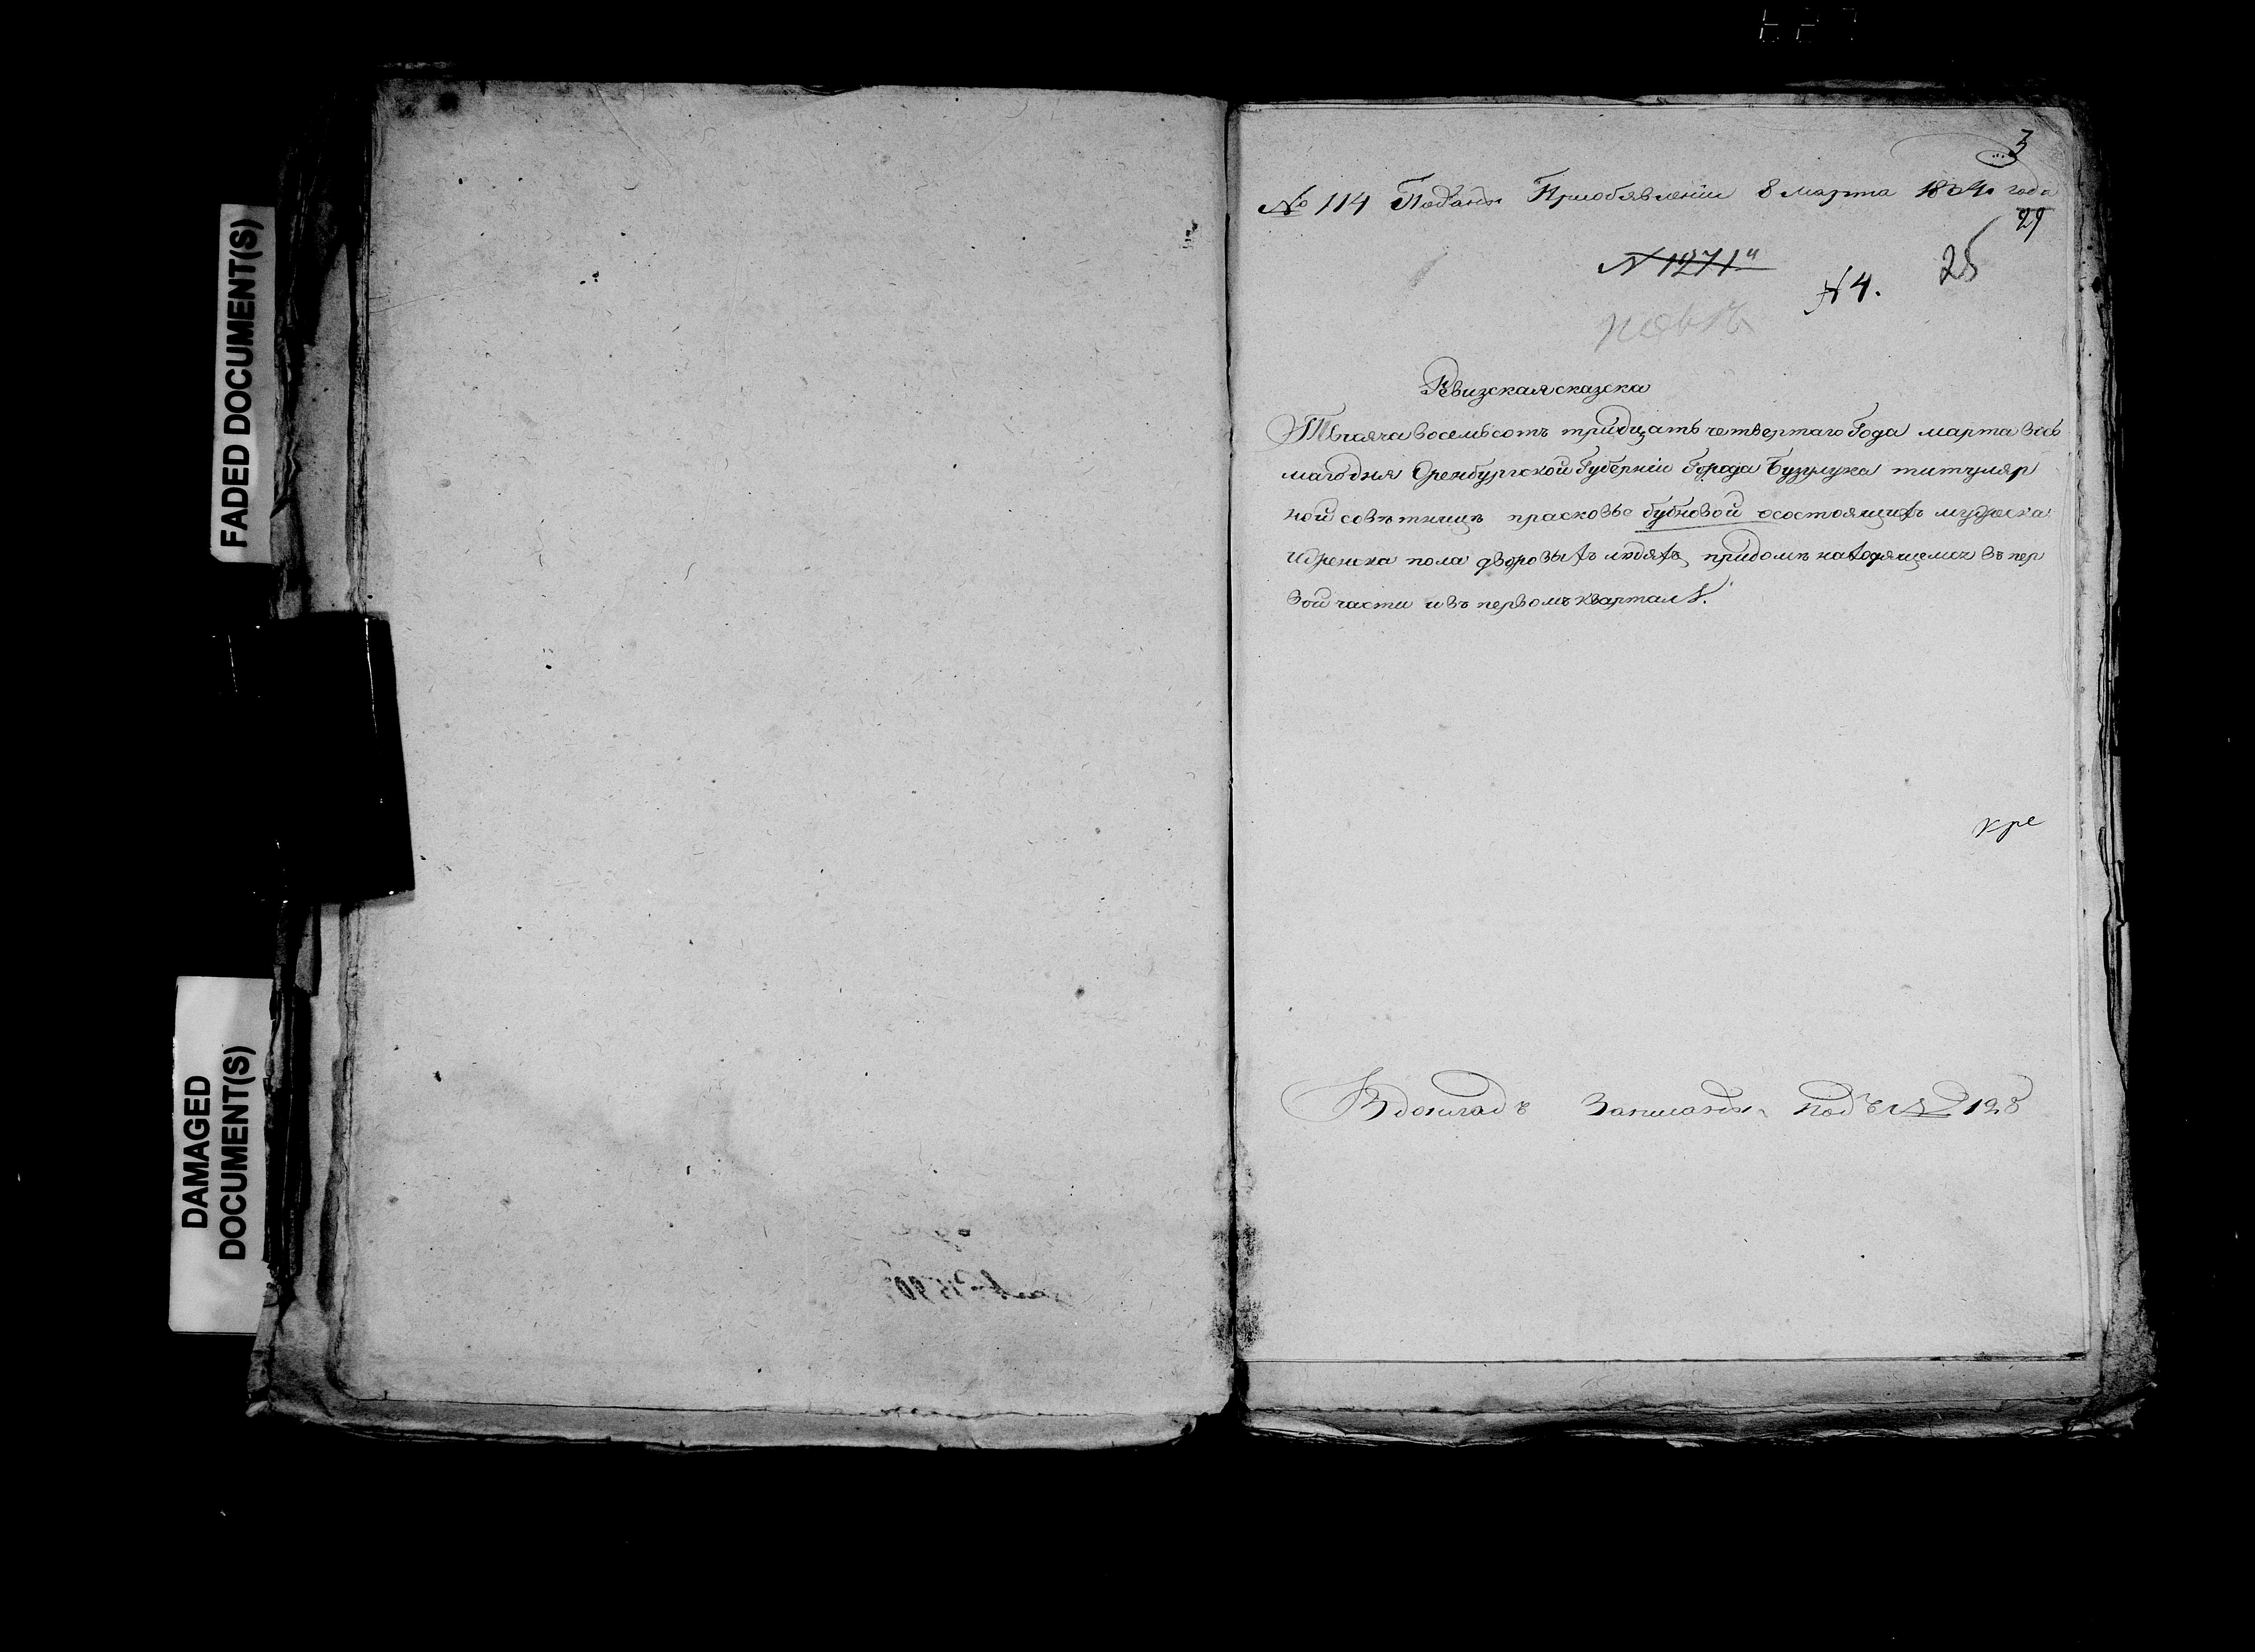 FADED DOCUMENT(S)
DAMAGED
DOCUMENT(S)
3
№ 114 Подана Приобявленіи 8 марта 1834 года
29
N 1271
25
N 4.
Ревизская сказска
Тысяча восемьсотъ тридцать четвертаго Года марта вось
магодня Оренбургской Губерніи Города Бузулука титуляр
ной совѣтницѣ прасковье бубновой осостоящихъ мужеска
иженска пола дворовыхъ людяхъ придомѣ находящемся въ пер
вой части ивъ первомъ кварталѣ.
кре
Вдокладъ Записана подъ № 128